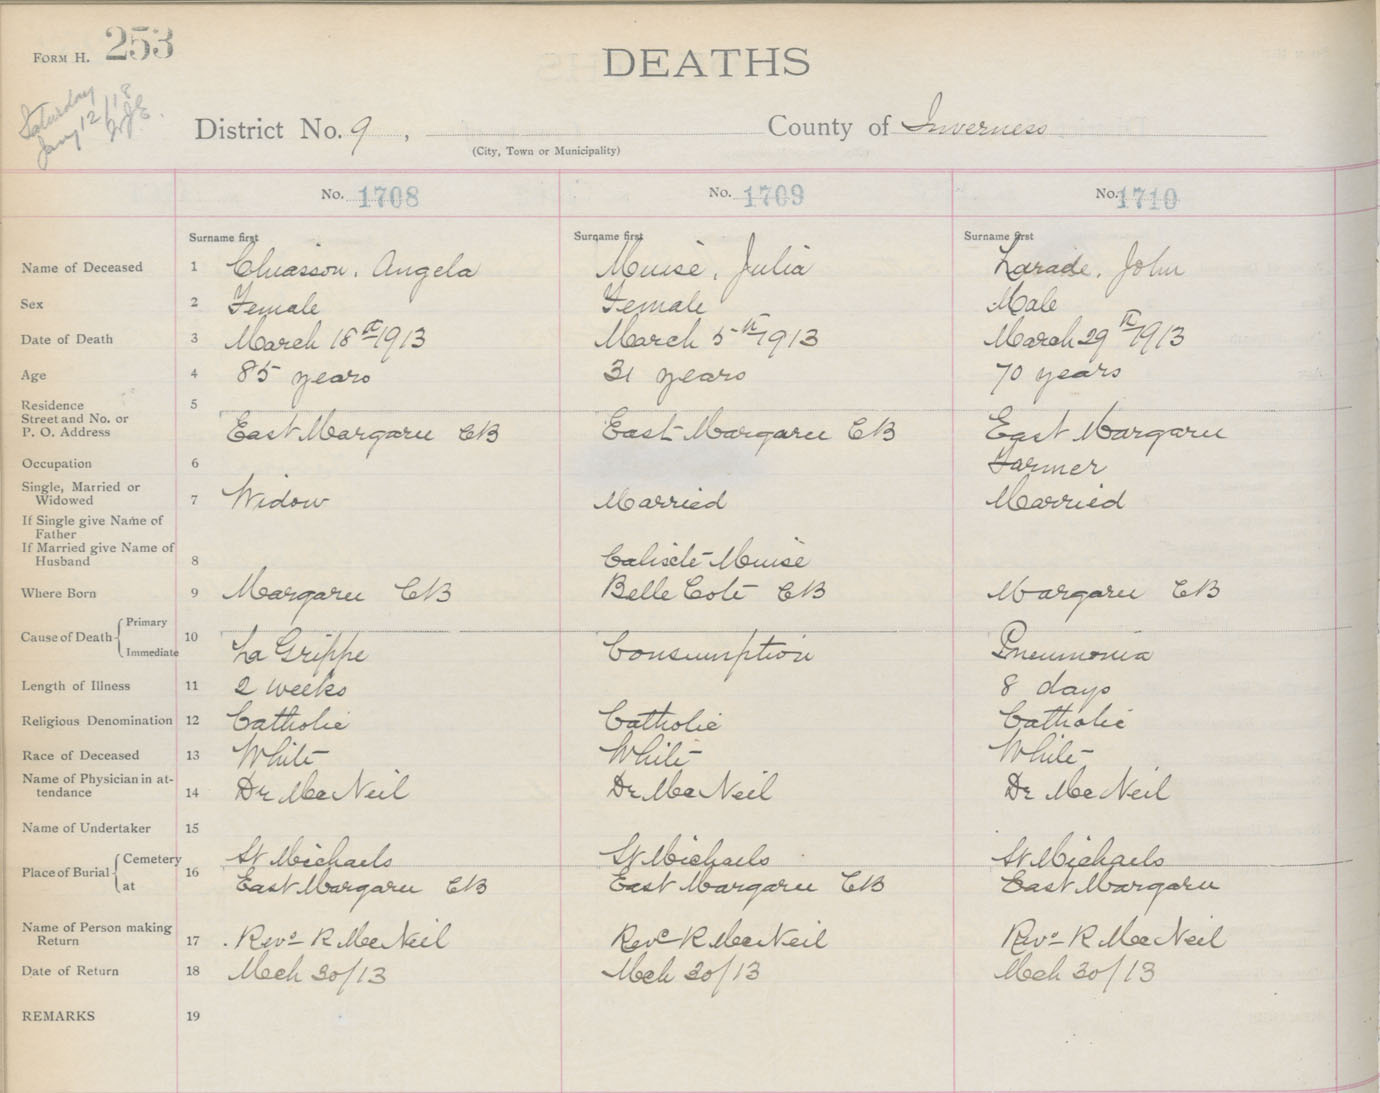 FORM H. 253
DEATHS
Saturday
Jany 12/18
District No. 9 , County of Inverness
(City, Town or Municipality)
No. 1708 No. 1709 No. 1710
Surname first Surname first Surname first
Name of Deceased 1 Chiasson, Angela Muise, Julia Larade, John
Sex 2 Female Female Male
Date of Death 3 March 18th 1913 March 5th 1913 March 29th 1913
Age 4 85 years 31 years 70 years
Residence 5
Street and No. or
P. O. Address East Margaree CB East Margaree CB East Margaree
Occupation 6 Farmer
Single, Married or
Widowed 7 Widow Married Married
If Single give Name of
Father
If Married give Name of
Husband 8 Calixte Muise
Where Born 9 Margaree CB Belle Cote CB Margaree CB
Primary
Cause of Death 10
Immediate La Grippe Consumption Pneumonia
Length of Illness 11 2 weeks 8 days
Religious Denomination 12 Catholic Catholic Catholic
Race of Deceased 13 White White White
Name of Physician in at-
tendance 14 Dr MacNeil Dr MacNeil Dr MacNeil
Name of Undertaker 15
Cemetery St Michaels St Michaels St Michaels
Place of Burial 16
at East Margaree CB East Margaree CB East Margaree
Name of Person making
Return 17 Revd R MacNeil Revd R MacNeil Revd R MacNeil
Date of Return 18 Mch 30/13 Mch 30/13 Mch 30/13
REMARKS 19